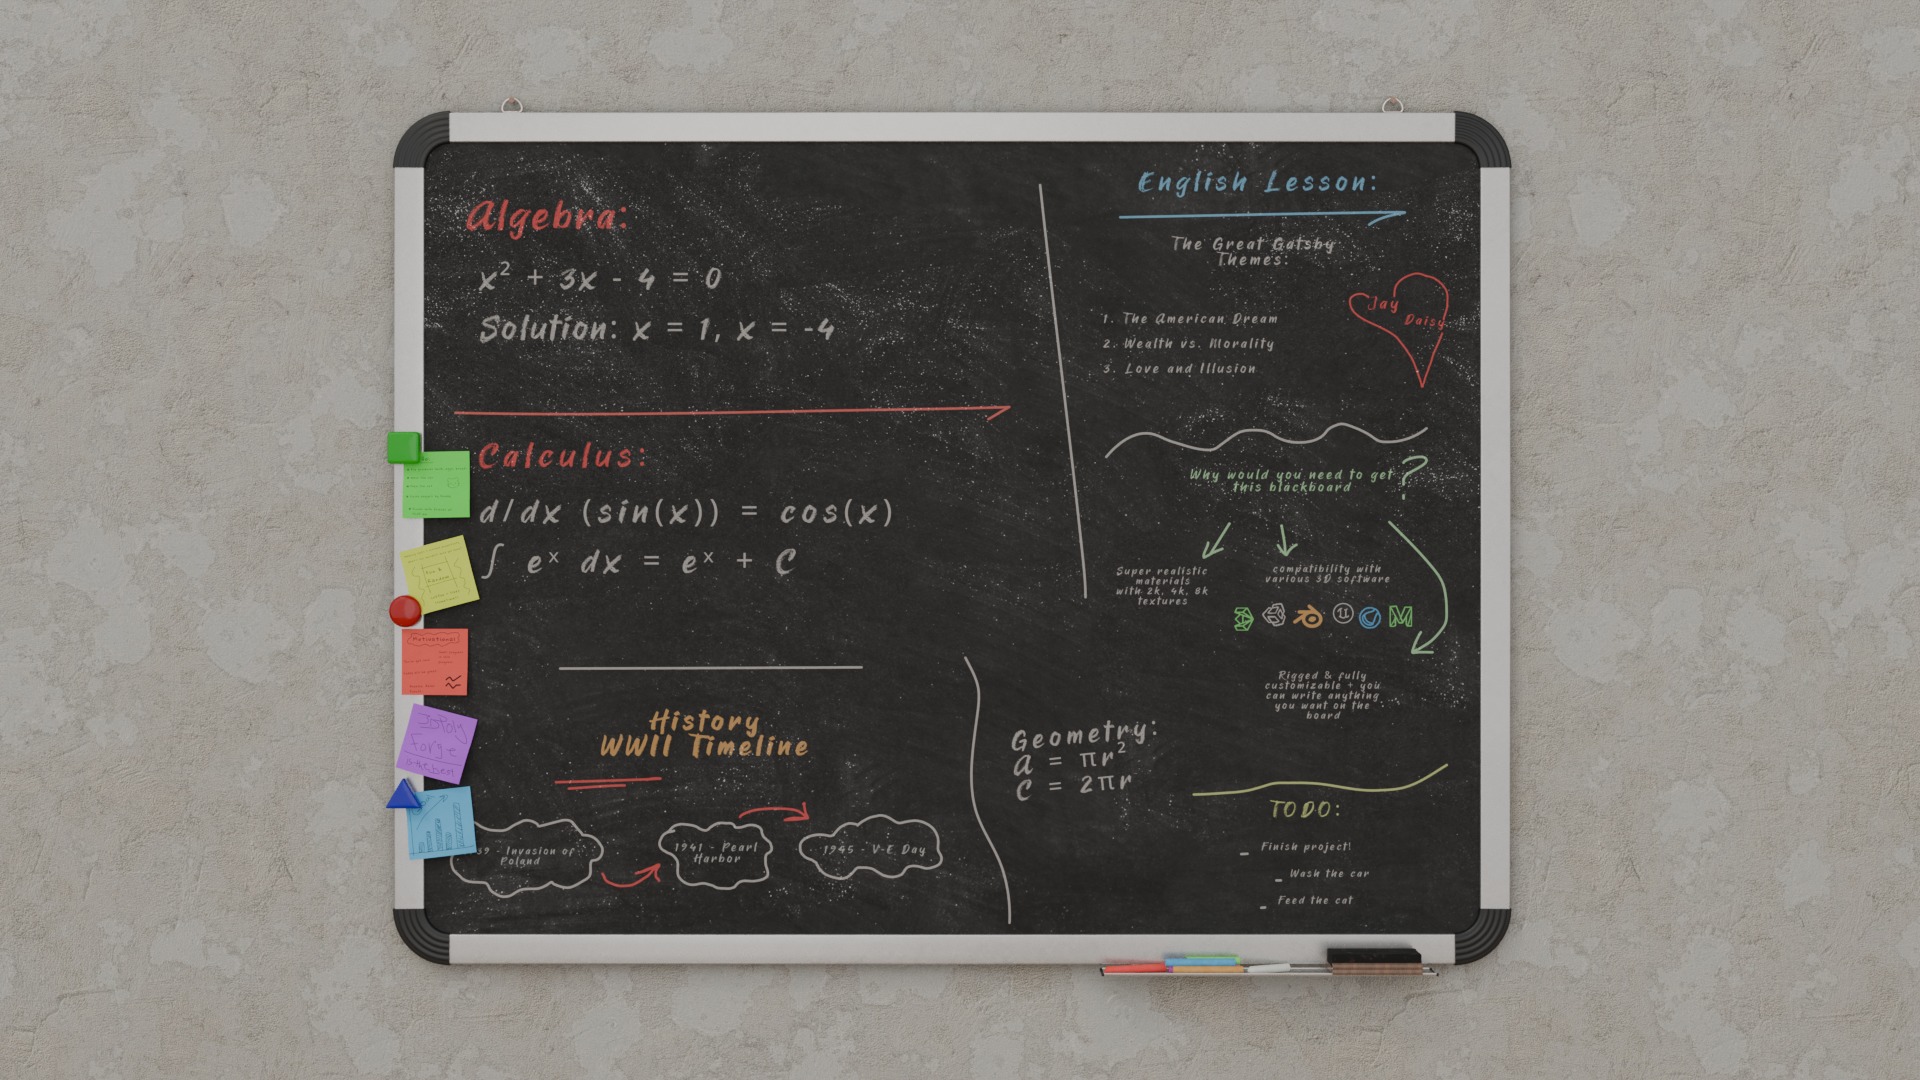 Algebra:
x² + 3x - 4 = 0
Solution: x = 1, x = -4
Calculus:
d/dx (sin(x)) = cos(x)
∫ eˣ dx = eˣ + C
History
WWII Timeline
39 - Invasion of
Poland
1941 - Pearl
Harbor
1945 - V-E Day
Geometry:
A = πr²
C = 2πr
English Lesson:
The Great Gatsby
Themes:
1. The American Dream
2. Wealth vs. Morality
3. Love and Illusion
Jay
Daisy
Why would you need to get
this blackboard ?
Super realistic
materials
with 2k, 4k, 8k
textures
compatibility with
various 3D software
Rigged & fully
customizable + you
can write anything
you want on the
board
TODO:
- Finish project!
- Wash the car
- Feed the cat
Motivational